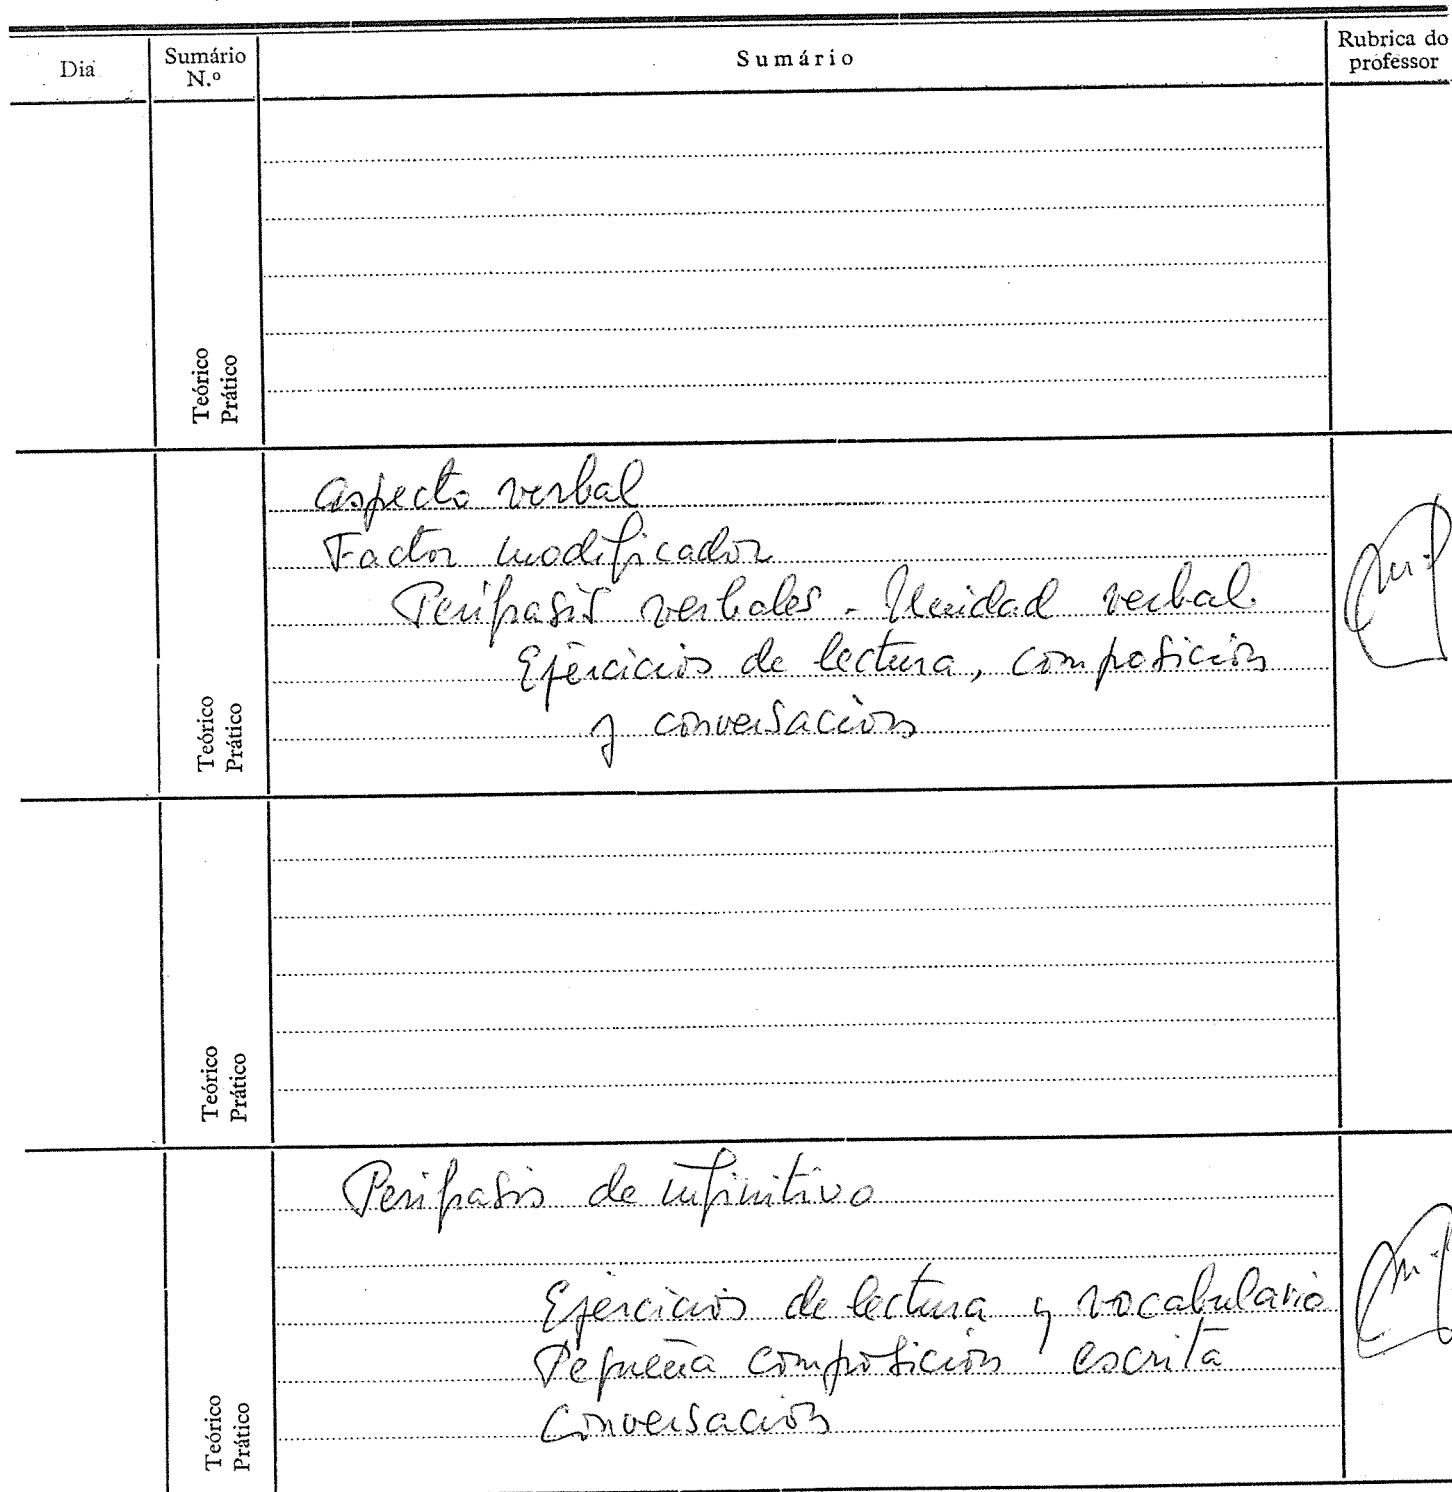 Dia
Sumário N.º
Sumário
Rubrica do professor
Teórico
Prático
Aspecto verbal
Factor modificador
Perífrasis verbales - Unidad verbal
Ejercicios de lectura, composición
y conversación
Teórico
Prático
Teórico
Prático
Perífrasis de infinitivo
Ejercicios de lectura y vocabulario
Pequeña composición escrita
Conversación
Teórico
Prático